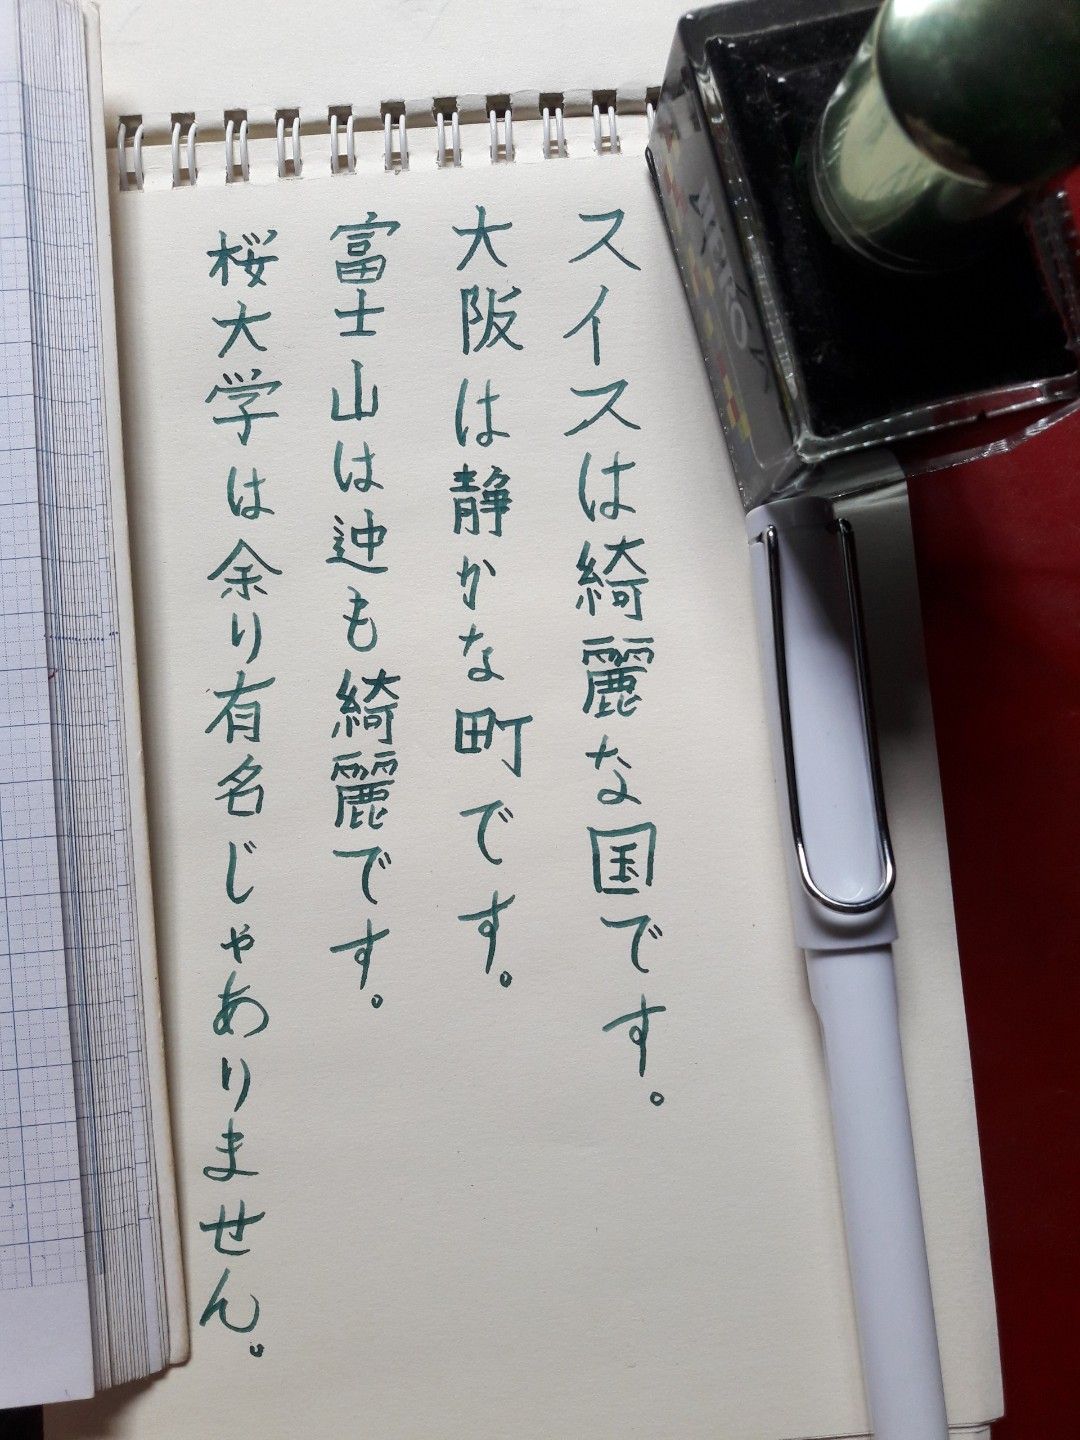 スイスは綺麗な国です。
大阪は静かな町です。
富士山は迚も綺麗です。
桜大学は余り有名じゃありません。